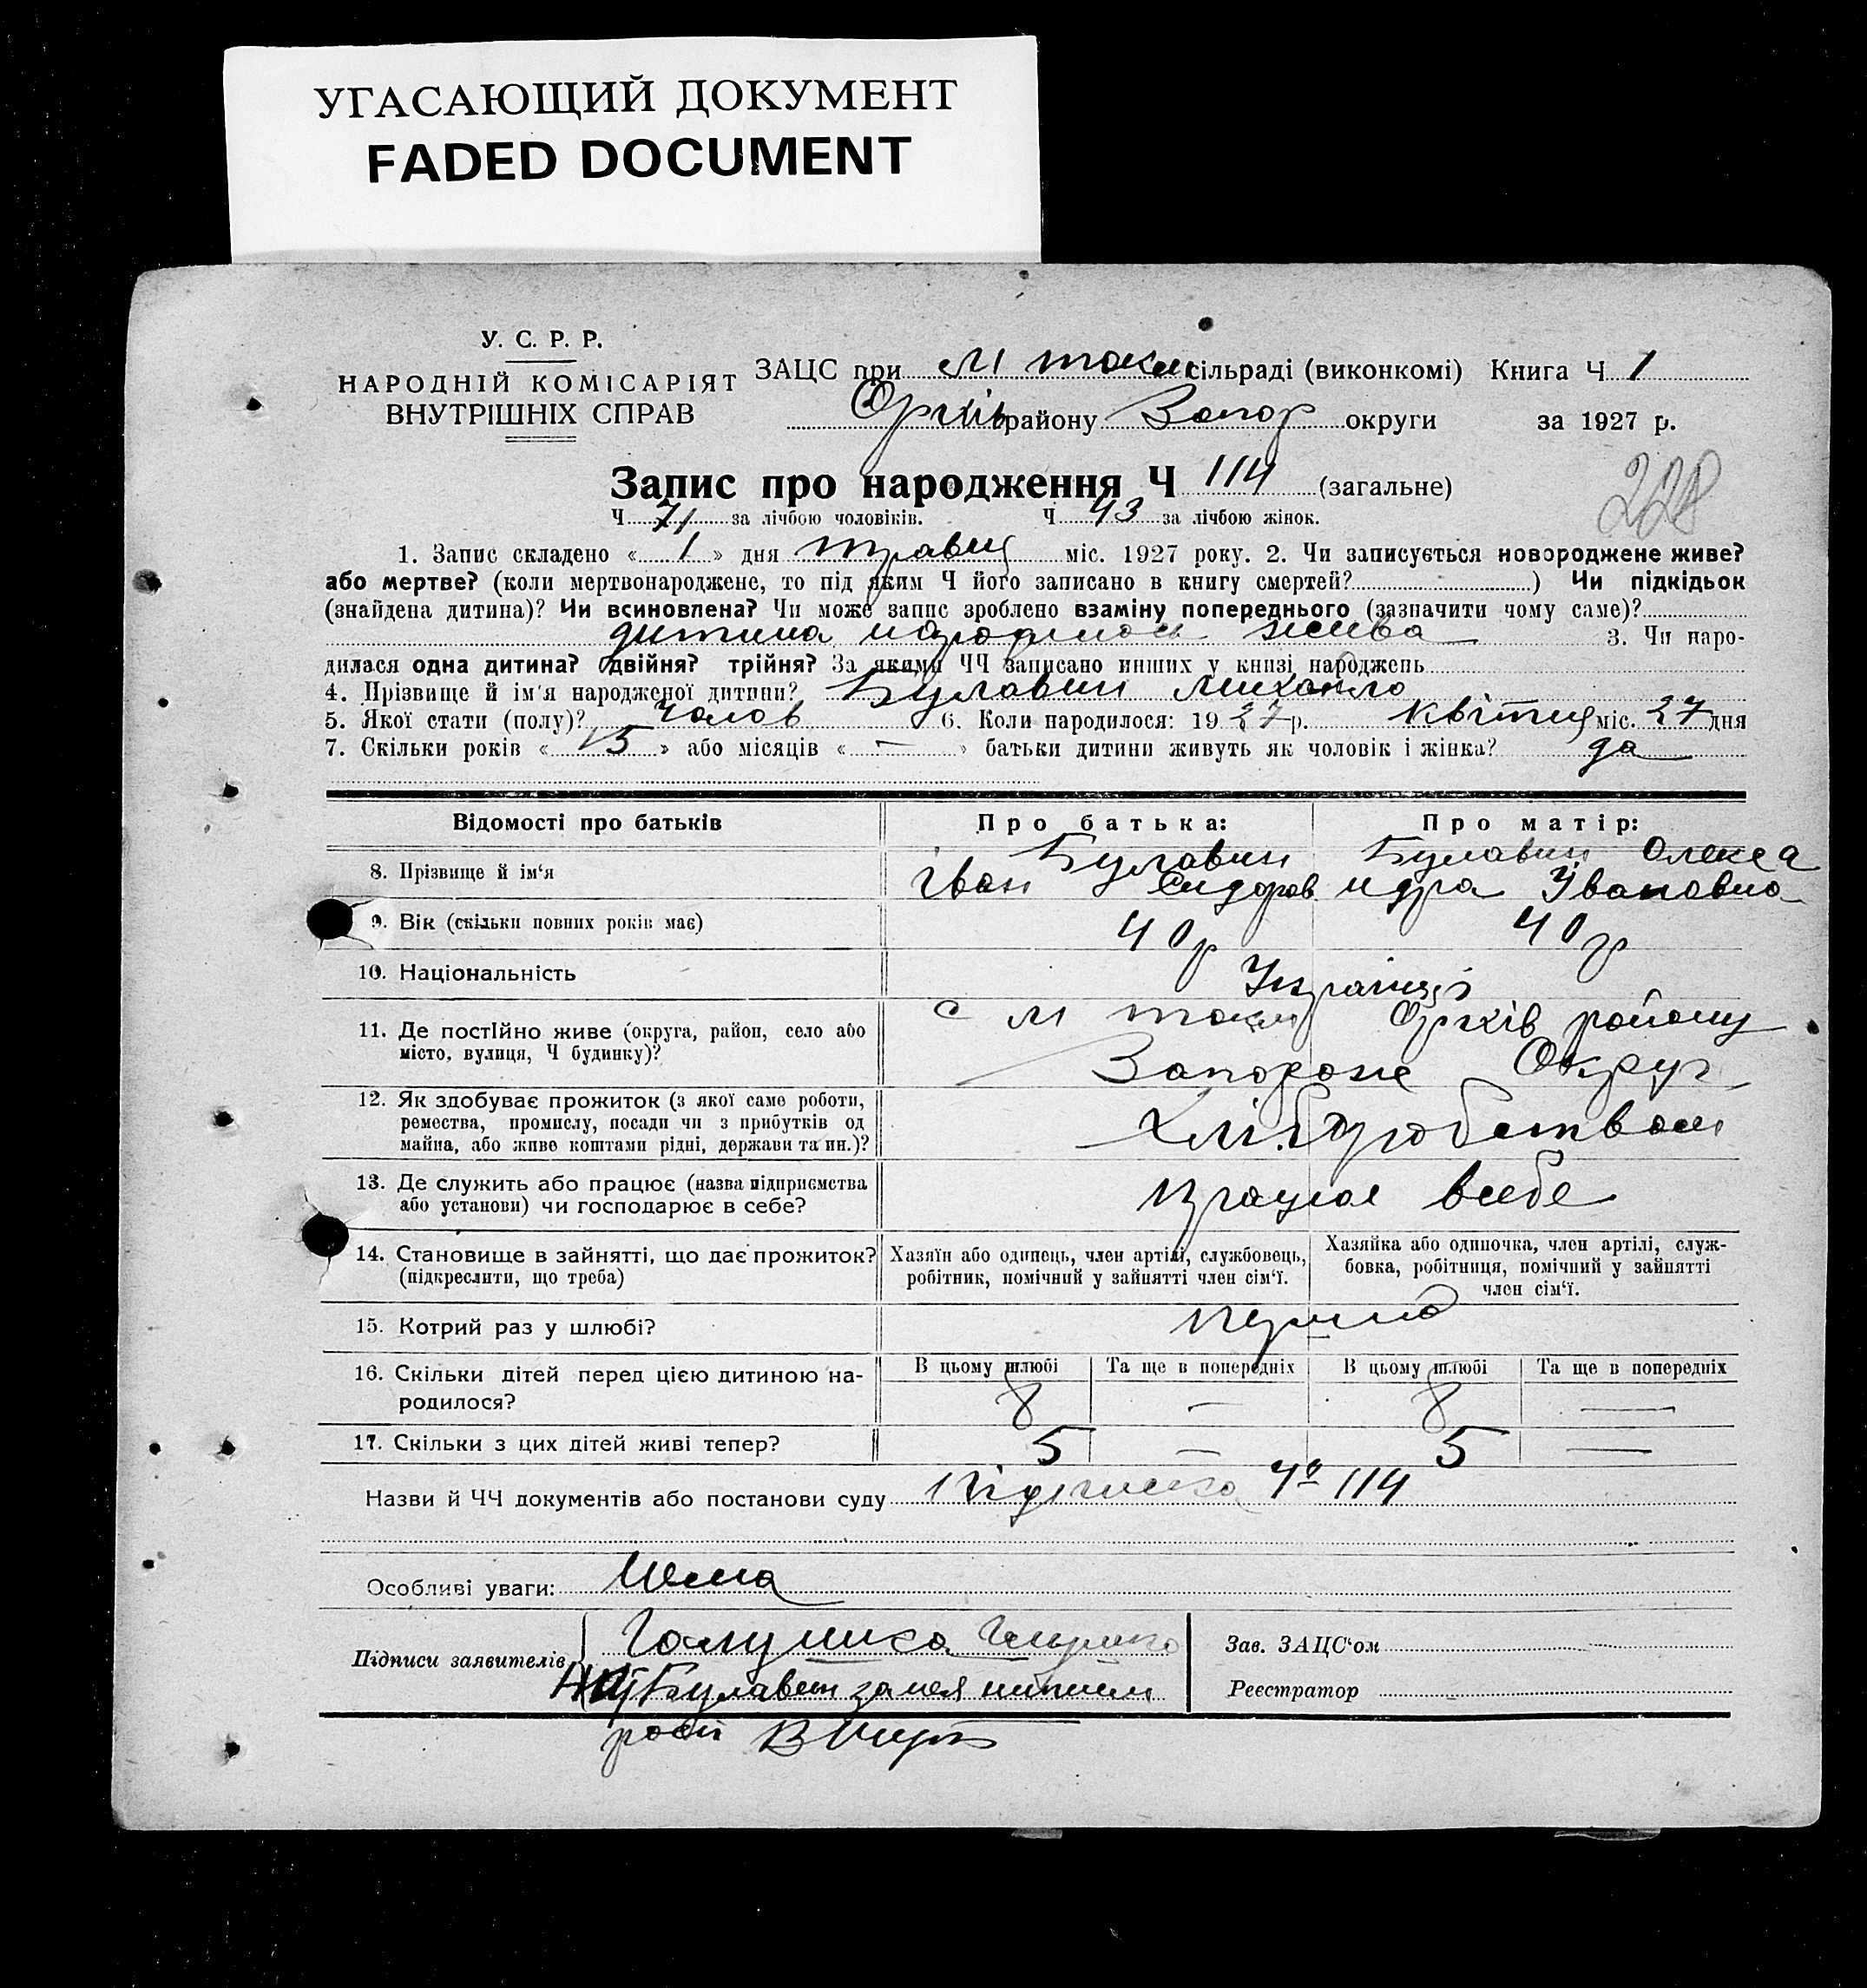 УГАСАЮЩИЙ ДОКУМЕНТ
FADED DOCUMENT
У. С. Р. Р.
НАРОДНІЙ КОМІСАРІЯТ
ВНУТРІШНІХ СПРАВ
ЗАЦС при М токм сільраді (виконкомі) Книга Ч 1
Оріхів району Запор округи за 1927 р.
Запис про народження Ч 114 (загальне)
228
Ч 71 за лічбою чоловіків. Ч 43 за лічбою жінок.
1. Запис складено « 1 » дня травня міс. 1927 року. 2. Чи записується новороджене живе?
або мертве? (коли мертвонароджене, то під яким Ч його записано в книгу смертей? ) Чи підкідьок
(знайдена дитина)? Чи всиновлена? Чи може запис зроблено взаміну попереднього (зазначити чому саме)?
дитина народилась жива 3. Чи наро-
дилася одна дитина? двійня? трійня? За якими ЧЧ записано инших у книзі народжень
4. Прізвище й ім'я народженої дитини? Булавин Михайло
5. Якої стати (полу)? Чолов 6. Коли народилося: 1927 р. Квітня міс. 27 дня
7. Скільки років « 15 » або місяців « — » батьки дитини живуть як чоловік і жінка? да
Відомості про батьків Про батька: Про матір:
8. Прізвище й ім'я Булавин Булавин Олекса
Іван Сидоров ндра Івановна
9. Вік (скільки повних років має) 40 р 40 р
10. Національність Українці
11. Де постІйно живе (округа, район, село або
місто, вулиця, Ч будинку)?
с М токм Оріхів району
Запорож Округ
12. Як здобуває прожиток (з якої саме роботи,
ремества, промислу, посади чи з прибутків од
майна, або живе коштами рідні, держави та ин.)?
Хліборобством
13. Де служить або працює (назва підприємства
або установи) чи господарює в себе?
працює всебе
14. Становище в зайнятті, що дає прожиток?
(підкреслити, що треба)
Хазяїн або одинець, член артілі, службовець,
робітник, помічний у зайнятті член сім'ї.
Хазяйка або одиночка, член артілі, служ-
бовка, робітниця, помічний у зайнятті
член сім'ї.
15. Котрий раз у шлюбі?
16. Скільки дітей перед цією дитиною на-
родилося?
В цьому шлюбі Та ще в попередніх В цьому шлюбі Та ще в попередніх
8 — 8 —
17. Скільки з цих дітей живі тепер? 5 — 5 —
Назви й ЧЧ документів або постанови суду Ч 114
Особливі уваги: Нема
Підписи заявителів
Булавин за нея
Зав. ЗАЦС'ом
Реєстратор